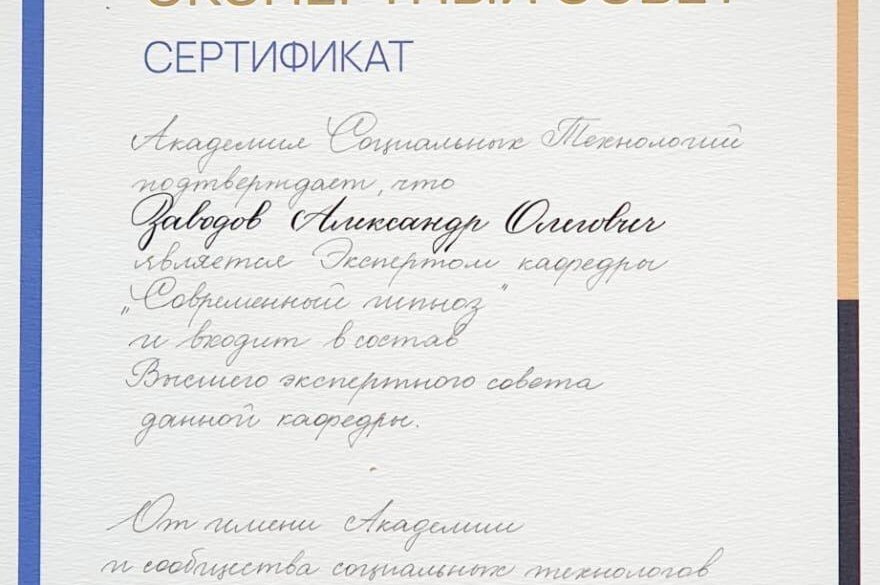 ЭКСПЕРТНЫЙ СОВЕТ
СЕРТИФИКАТ
Академия Социальных Технологий
подтверждает, что
Заводов Александр Олегович
является Экспертом кафедры
„Современный гипноз"
и входит в состав
Высшего экспертного совета
данной кафедры.
От имени Академии
и сообщества социальных технологов